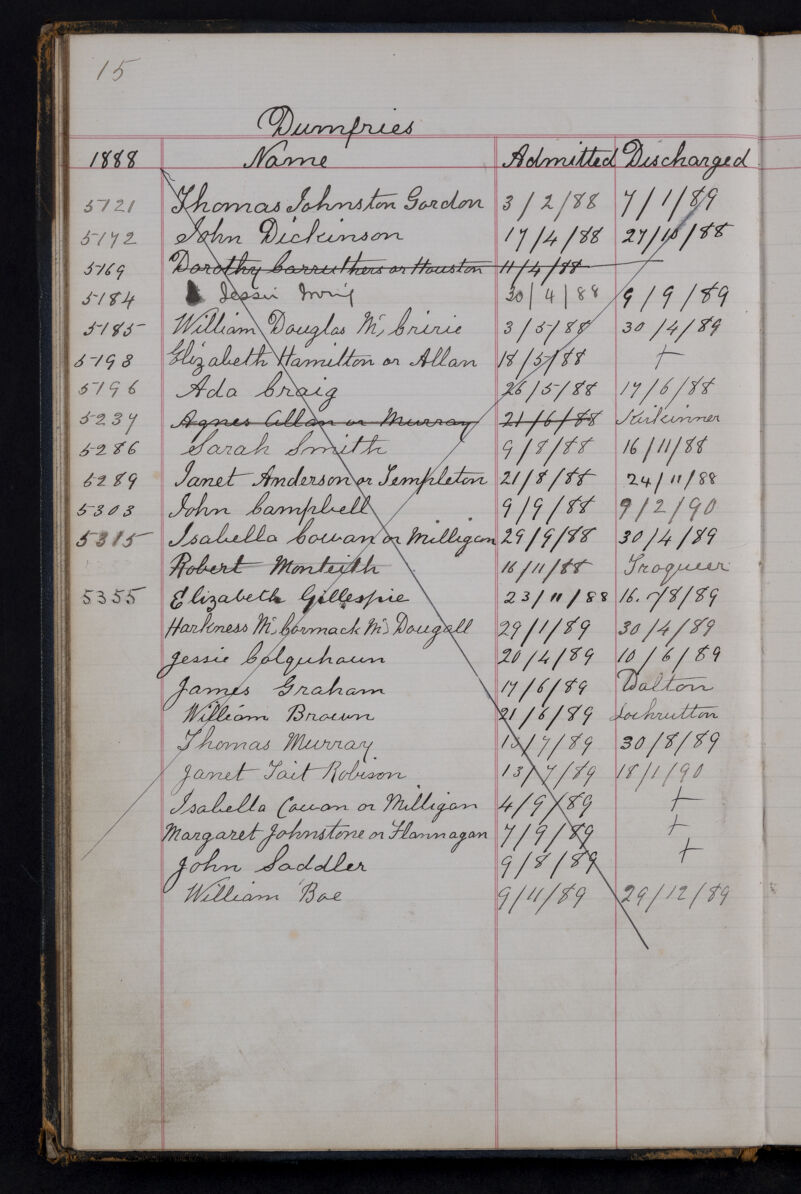 15
Dumfries
1888 Name Admitted Discharged
5121 Thomas Johnston Gordon 3/2/88 7/1/89
5172 John Dickinson 17/4/88 27/10/88
5169 Dorothy Carruthers or Houston 11/4/88
5184 Jessie Irving 30/4/88 9/9/89
5185 William Douglas Mc,Cririe 3/5/88 30/4/89
5193 Elizabeth Hamilton or Allan 18/5/88 +
5196 Ada Craig 26/5/88 17/6/88
5234 Agnes Allan or Murray 21/6/88 Kirkinner
5286 Sarah Smith 9/8/88 16/11/88
5289 Janet Anderson or Templeton 21/8/88 24/11/88
5303 John Campbell 9/9/88 9/2/90
5315 Isabella Cowan or Milligan 29/9/88 30/4/89
Robert Monteith 16/11/88 Troqueer
5355 Elizabeth Gillespie 23/11/88 16.7/8/89
Harkness Mc,Cormack Mc,Dougall 29/1/89 30/4/89
Jessie Colquhoun 20/4/89 10/6/89
James Graham 17/6/89 Dalton
William Brown 21/6/89 Lochrutton
Thomas Murray 13/7/89 30/8/89
Janet Tait Robison 13/7/89 18/1/90
Isabella Cowan or Milligan 4/9/89 +
Margaret Johnstone or Flannagan 7/9/89 +
John Saddler 9/8/89 +
William Bae 9/11/89 29/12/89